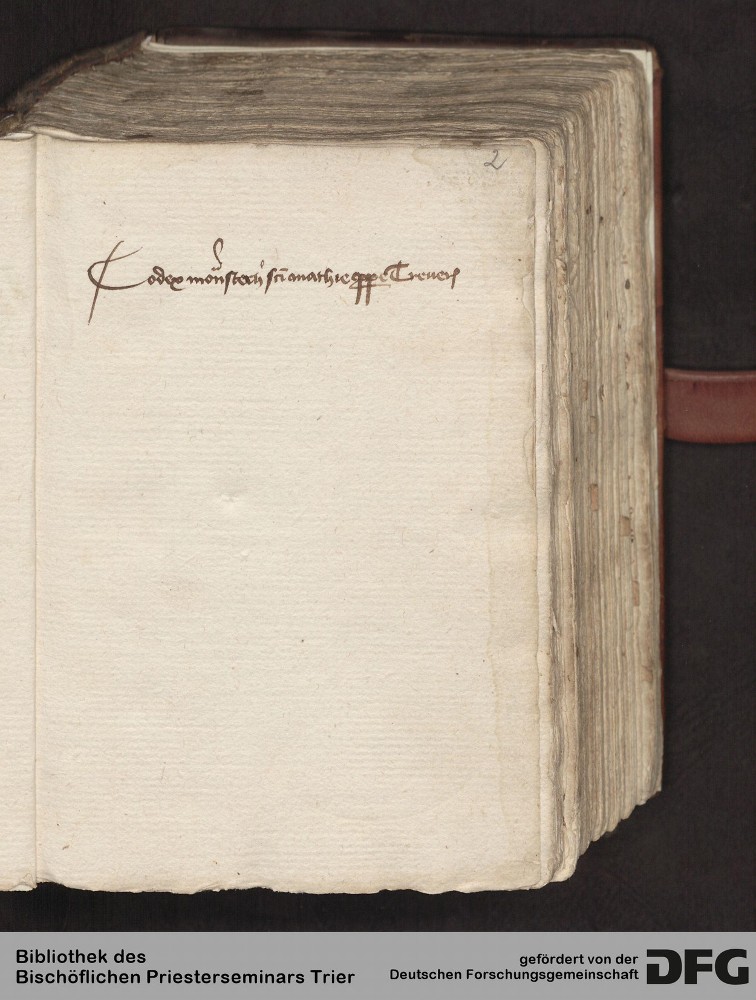 2
Codex mon̄sterij sc̄i mathie ꝓpe Treueris
Bibliothek des
Bischöflichen Priesterseminars Trier
gefördert von der
Deutschen Forschungsgemeinschaft
DFG